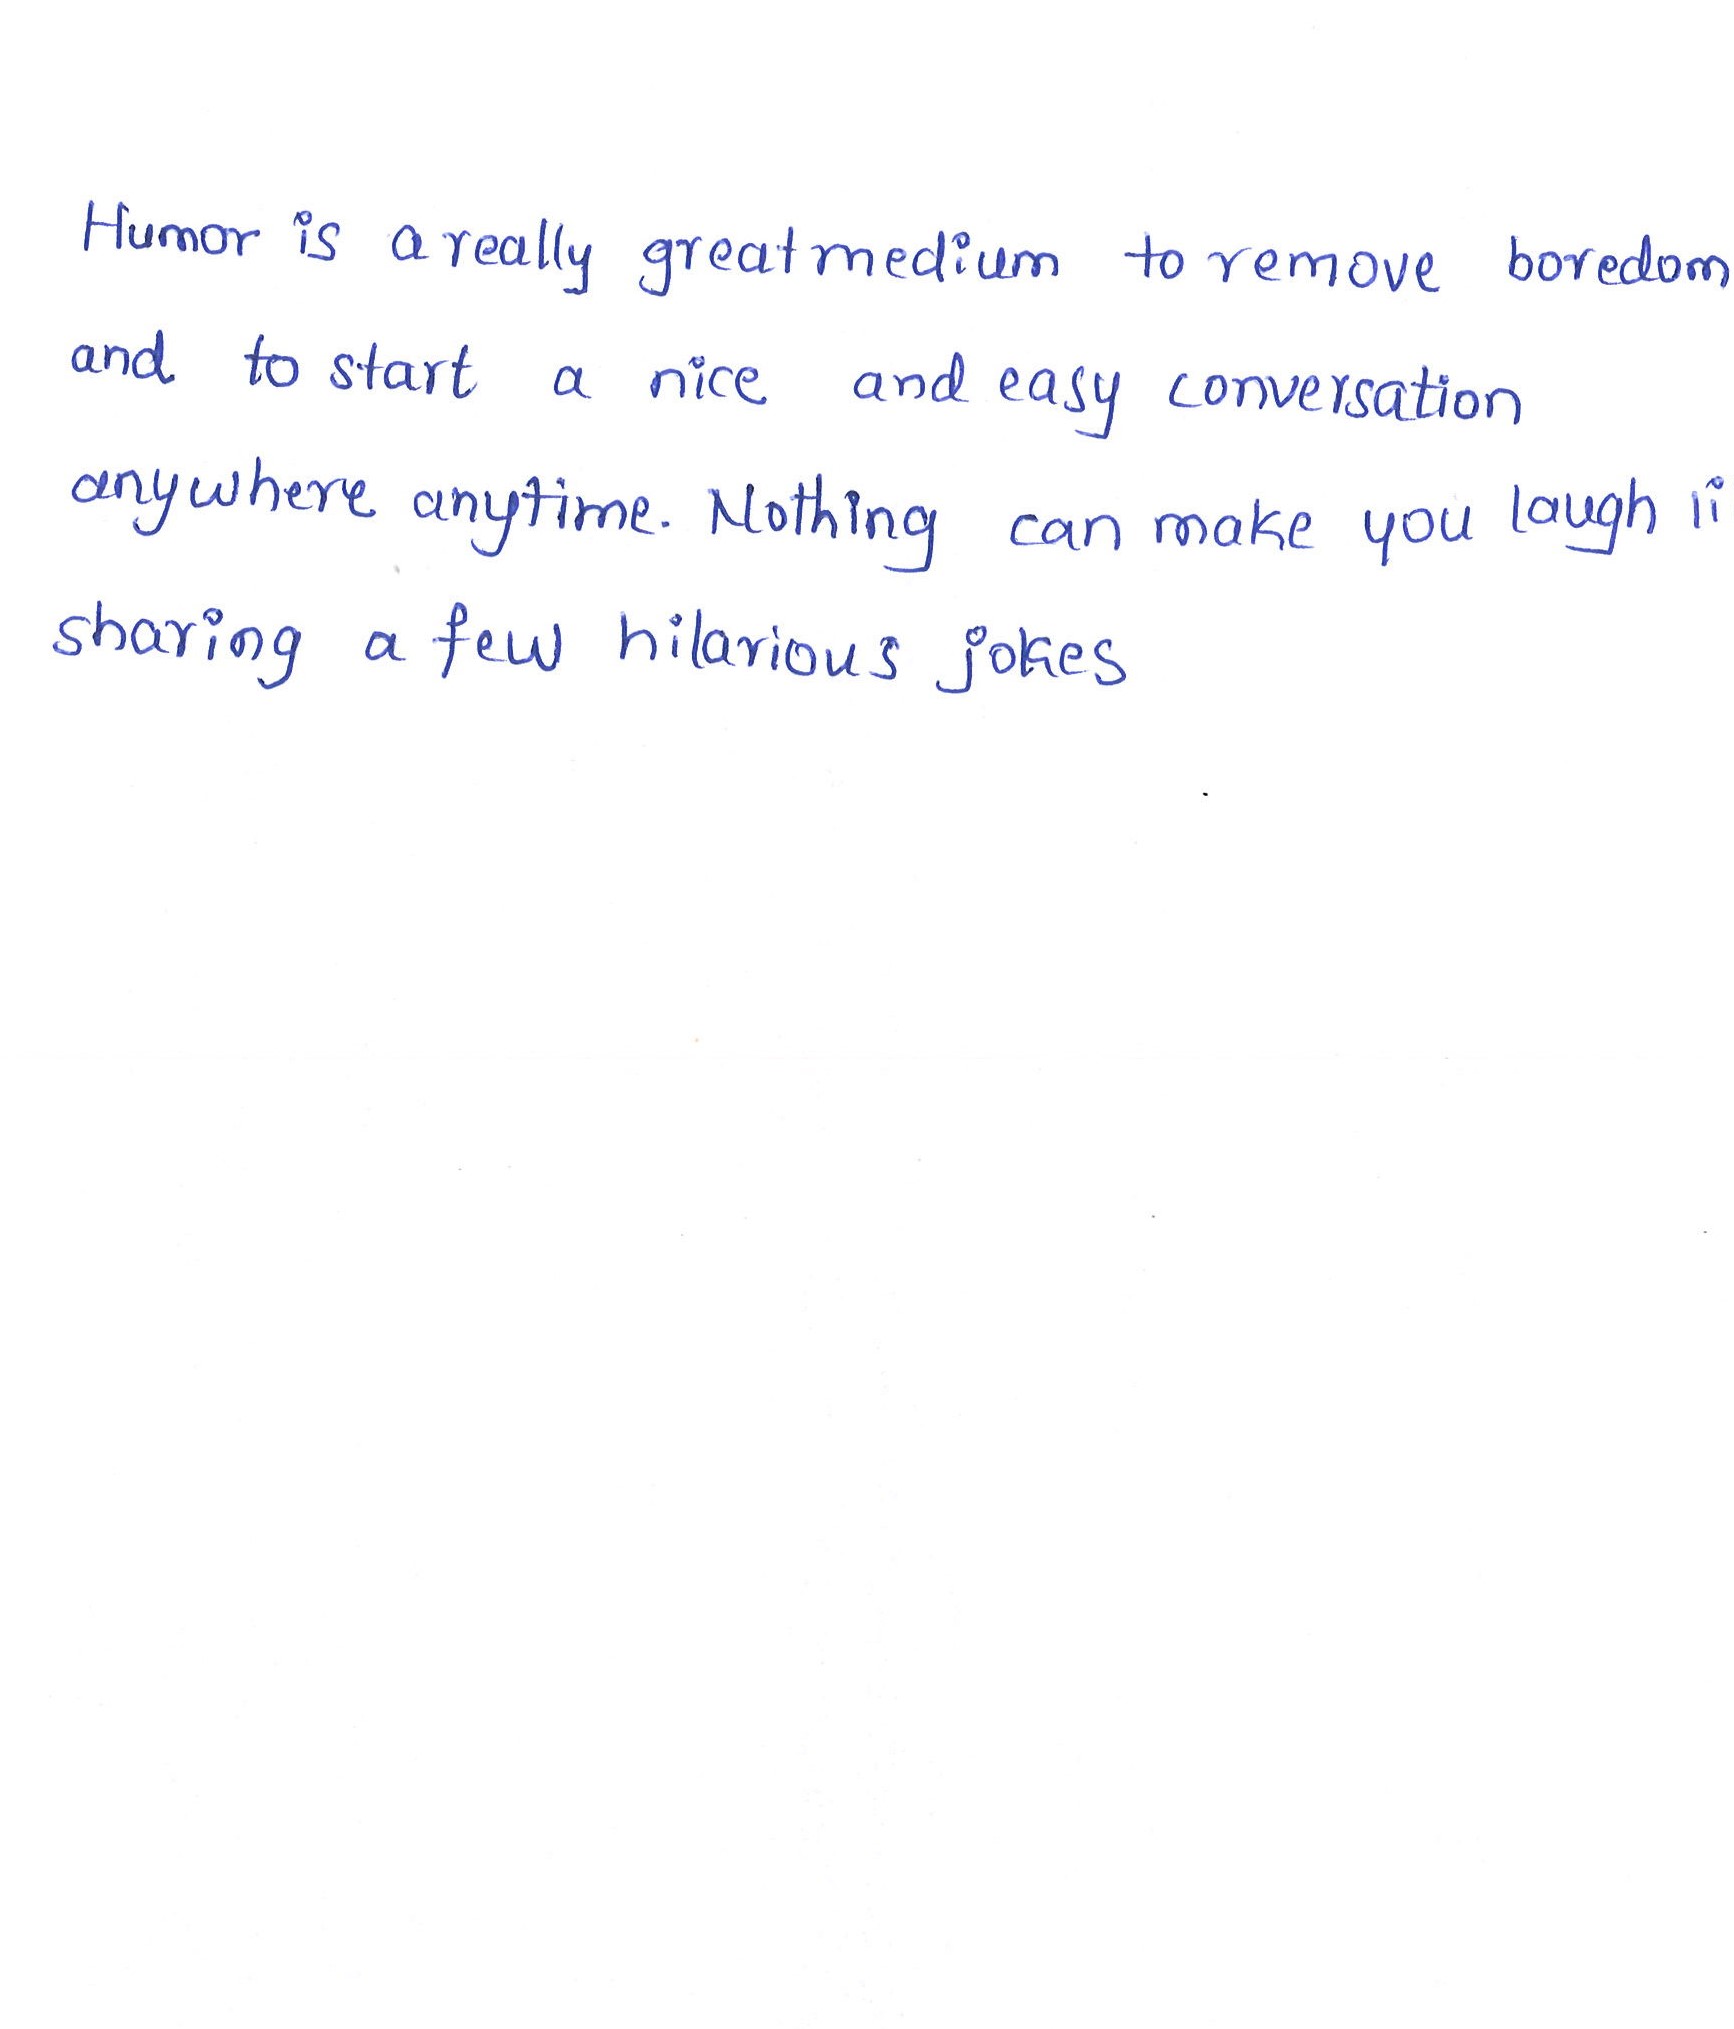 Humor is a really great medium to remove boredom
and to start a nice and easy conversation
anywhere anytime. Nothing can make you laugh
sharing a few hilarious jokes